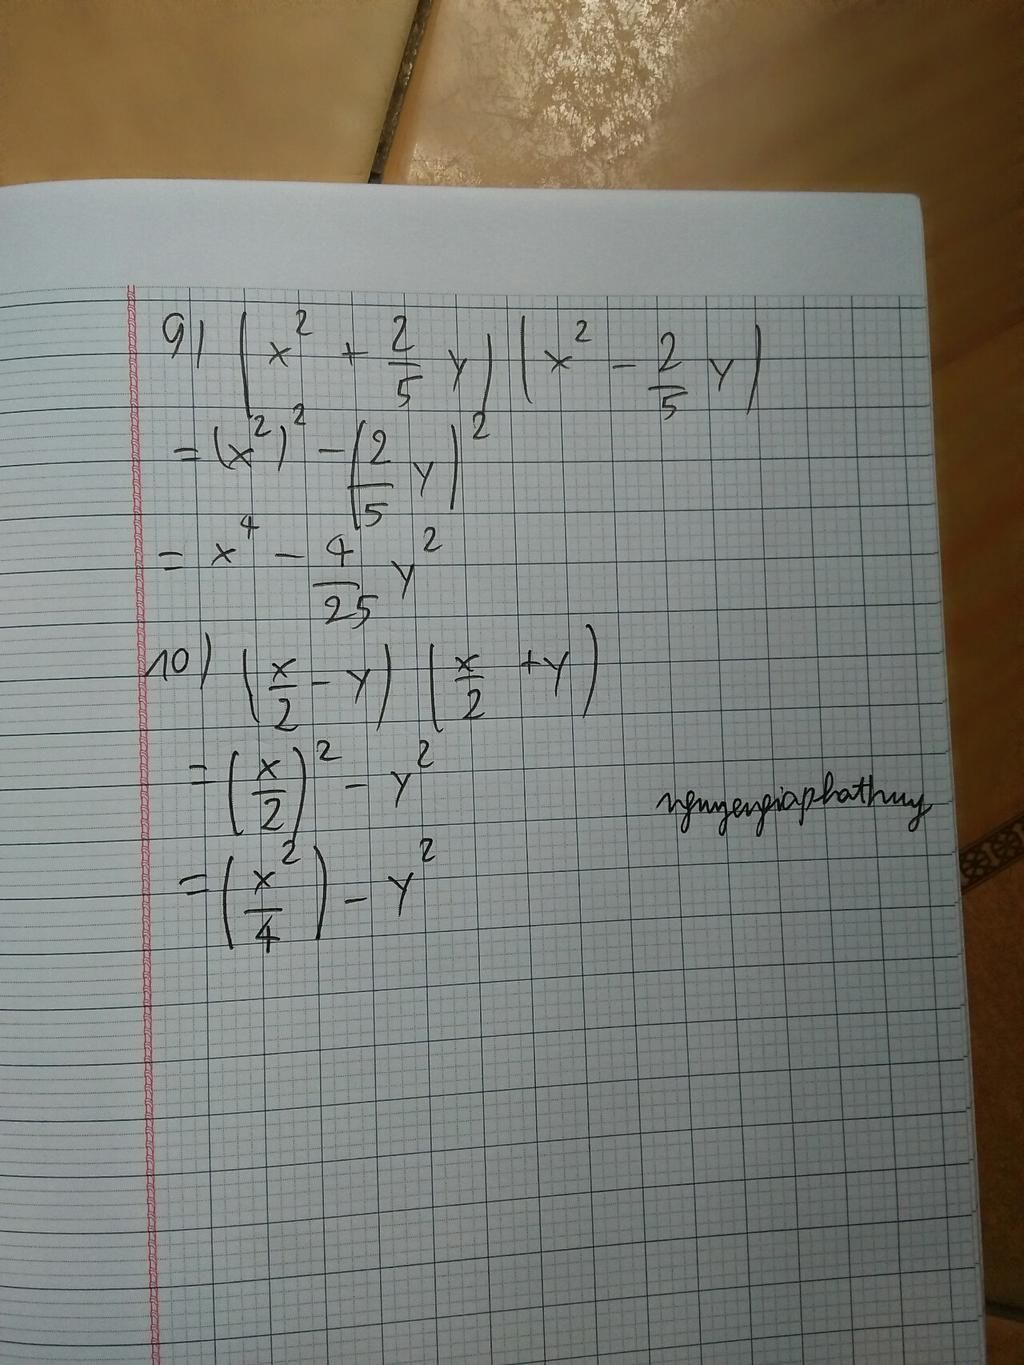 9) (x² + 2/5 y) (x² - 2/5 y)
= (x²)² - (2/5 y)²
= x⁴ - 4/25 y²
10) (x/2 - y) (x/2 + y)
= (x/2)² - y²
nguyengiaphathuy
= (x²/4) - y²